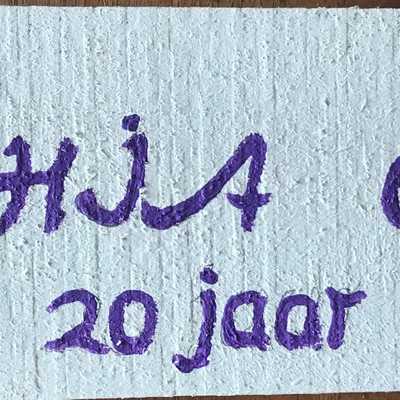 HJA
20 jaar